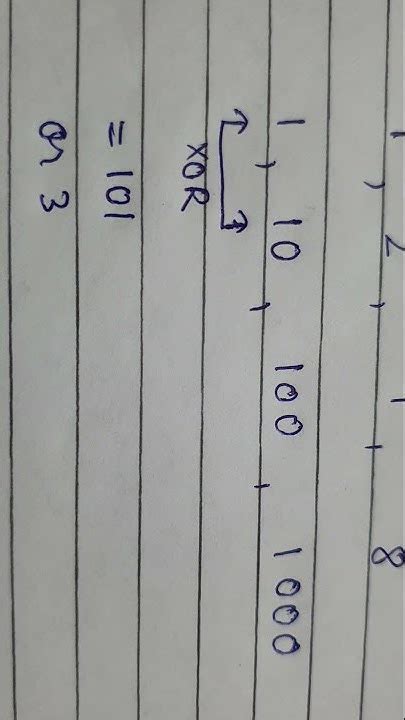 1 , 2 , , 8
1 , 10 , 100 , 1000
XOR
= 101
or 3